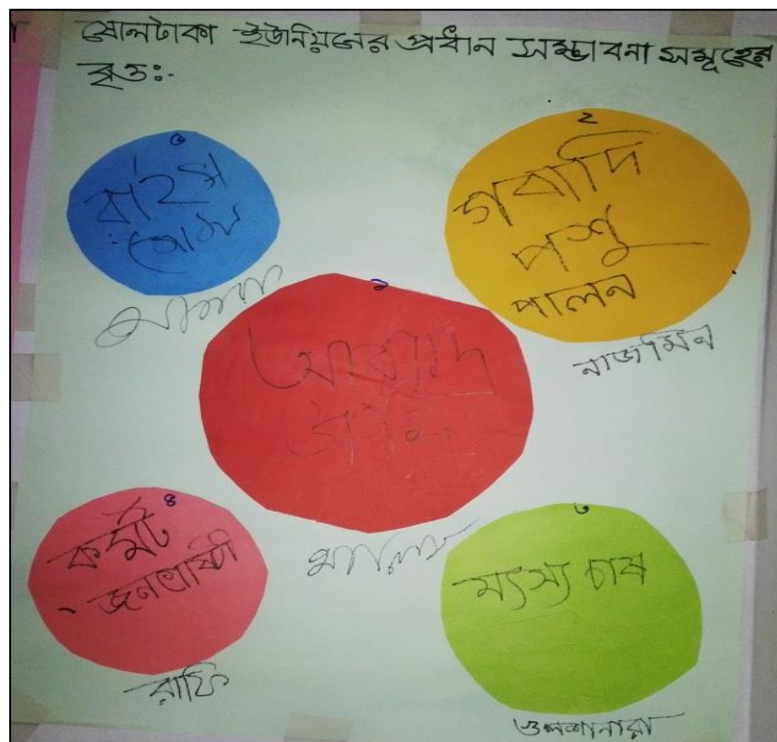 ষোলটাকা ইউনিয়নের প্রধান সম্ভাবনা সমূহের
বৃত্তঃ-
৫
২
গবাদি
পশু
পালন
নাজমিন
১
আবাদি
জমি
৪
কর্মট
জনগোষ্ঠী
রাফি
৩
মৎস্য চাষ
গুলশানারা